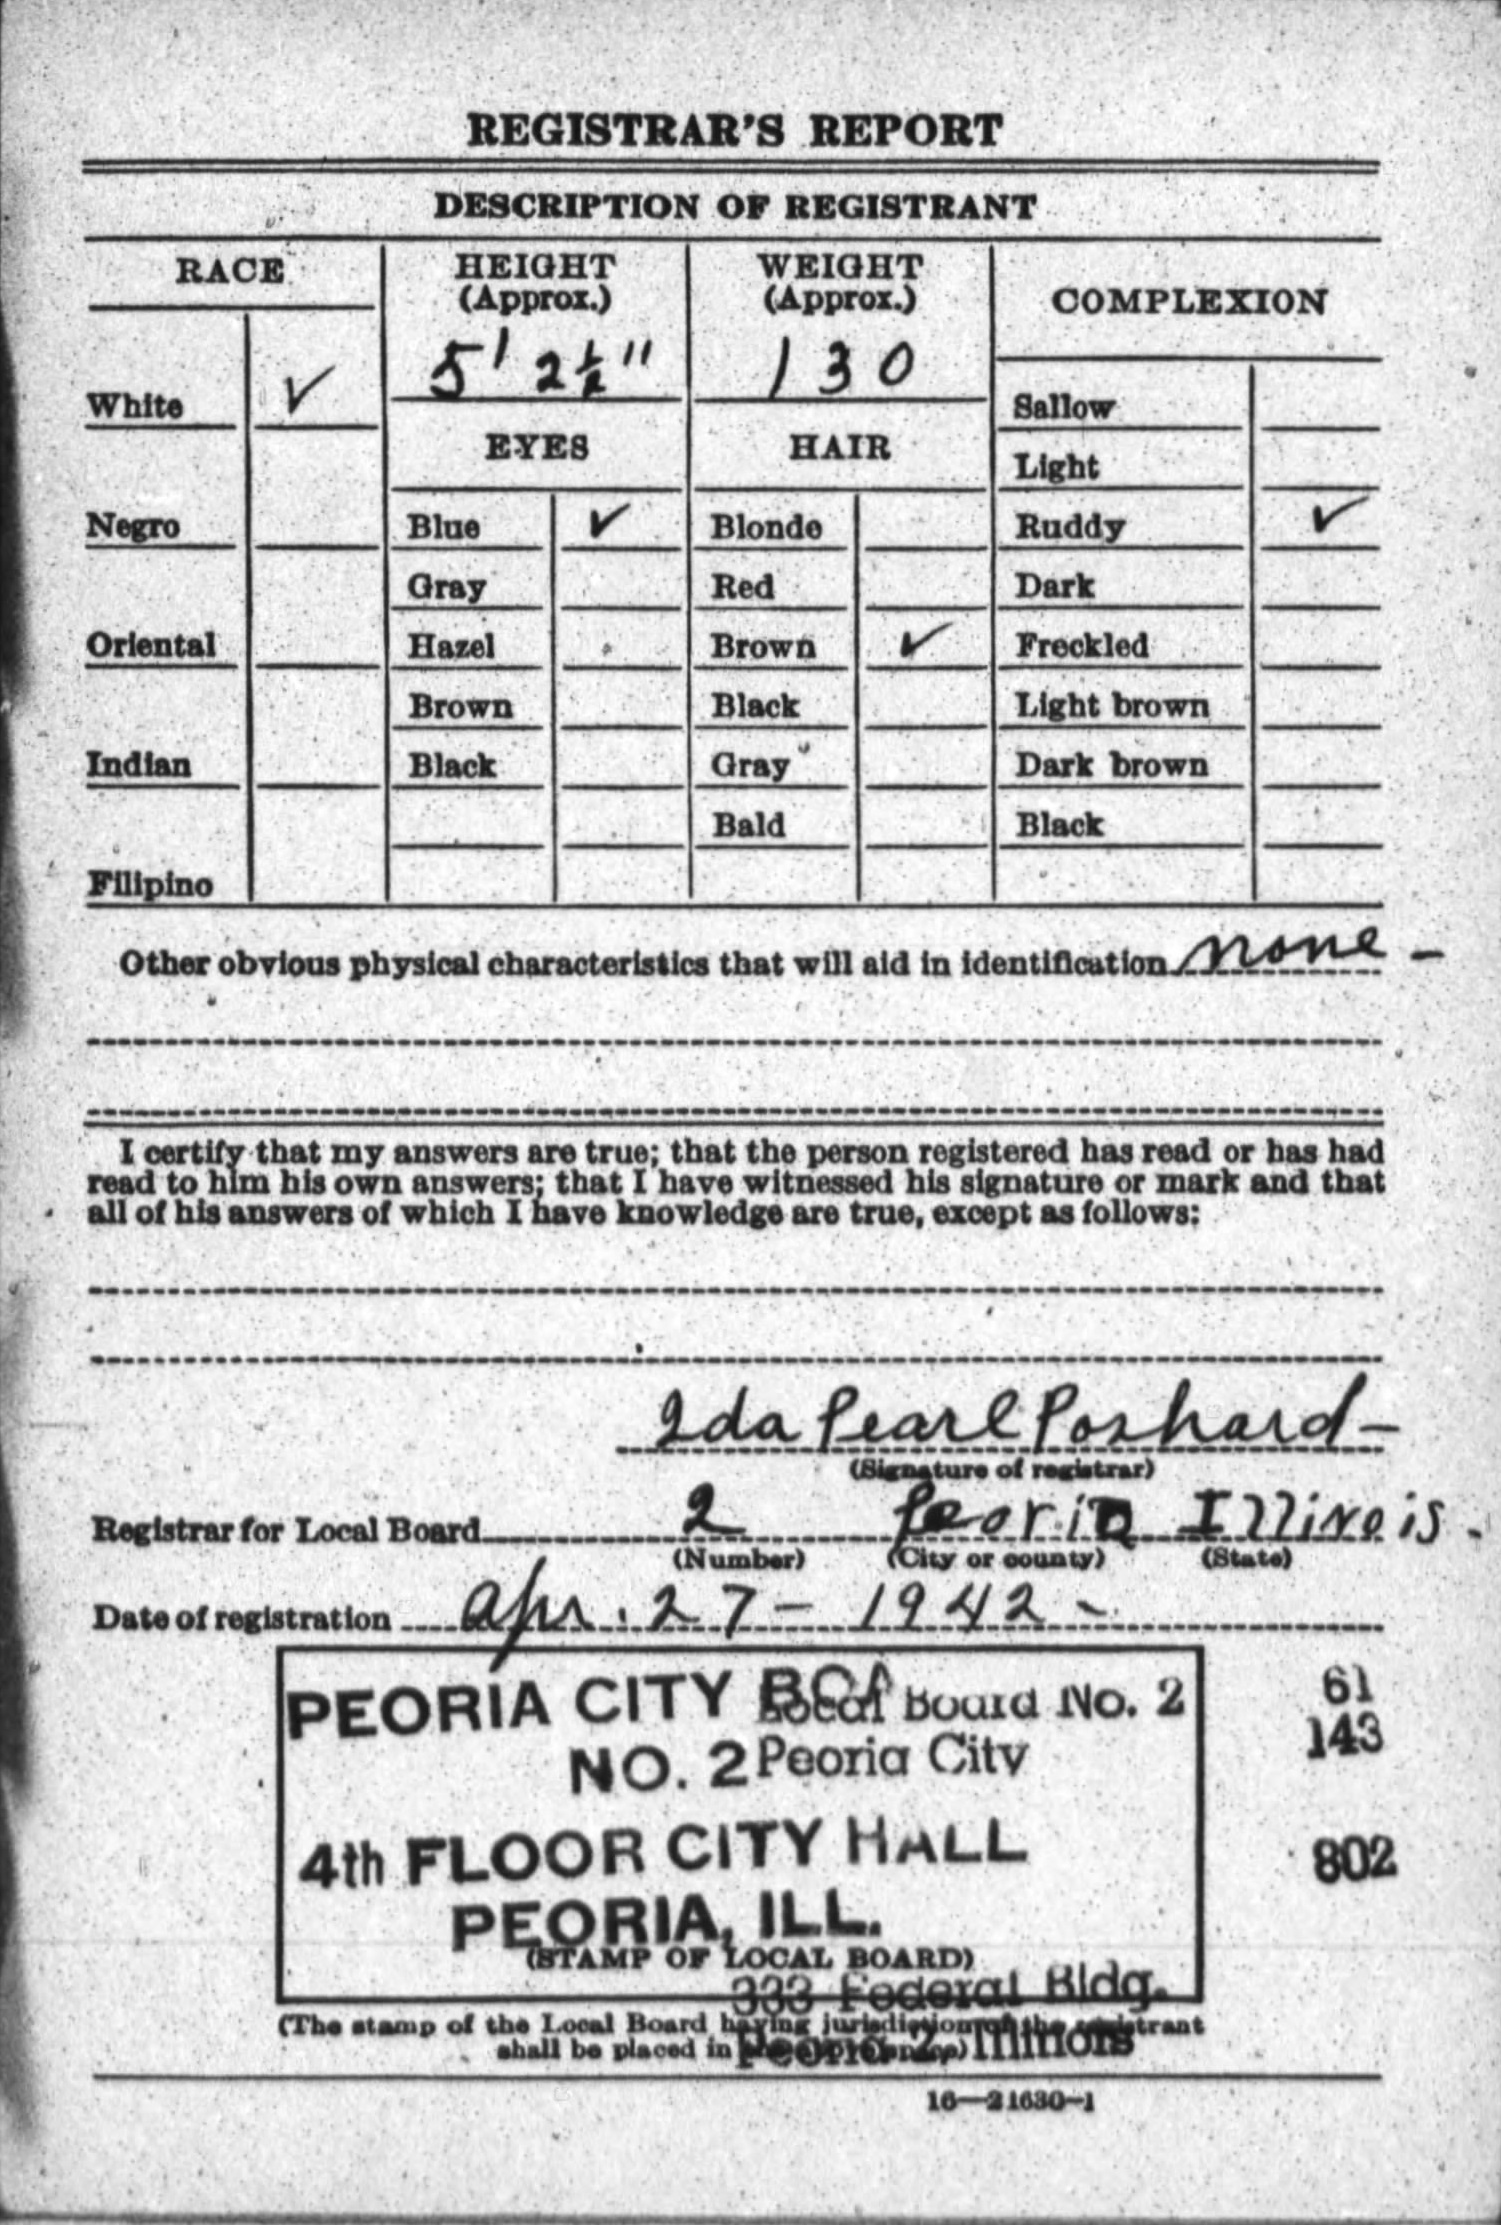 REGISTRAR'S REPORT
DESCRIPTION OF REGISTRANT
RACE
HEIGHT
(Approx.)
WEIGHT
(Approx.)
COMPLEXION
5' 2½"
130
White ✓
Sallow
EYES
HAIR
Light
Negro
Blue ✓
Blonde
Ruddy ✓
Gray
Red
Dark
Oriental
Hazel
Brown ✓
Freckled
Brown
Black
Light brown
Indian
Black
Gray
Dark brown
Bald
Black
Filipino
Other obvious physical characteristics that will aid in identification none -
I certify that my answers are true; that the person registered has read or has had
read to him his own answers; that I have witnessed his signature or mark and that
all of his answers of which I have knowledge are true, except as follows:
Ida Pearl Poshard -
(Signature of registrar)
Registrar for Local Board 2 Peoria Illinois.
(Number) (City or county) (State)
Date of registration Apr. 27 - 1942 -
PEORIA CITY Local Board No. 2
NO. 2 Peoria City
4th FLOOR CITY HALL
PEORIA, ILL.
(STAMP OF LOCAL BOARD)
333 Federal Bldg.
61
143
802
(The stamp of the Local Board having jurisdiction of the registrant
shall be placed in
Peoria 2, Illinois
16—21630-1